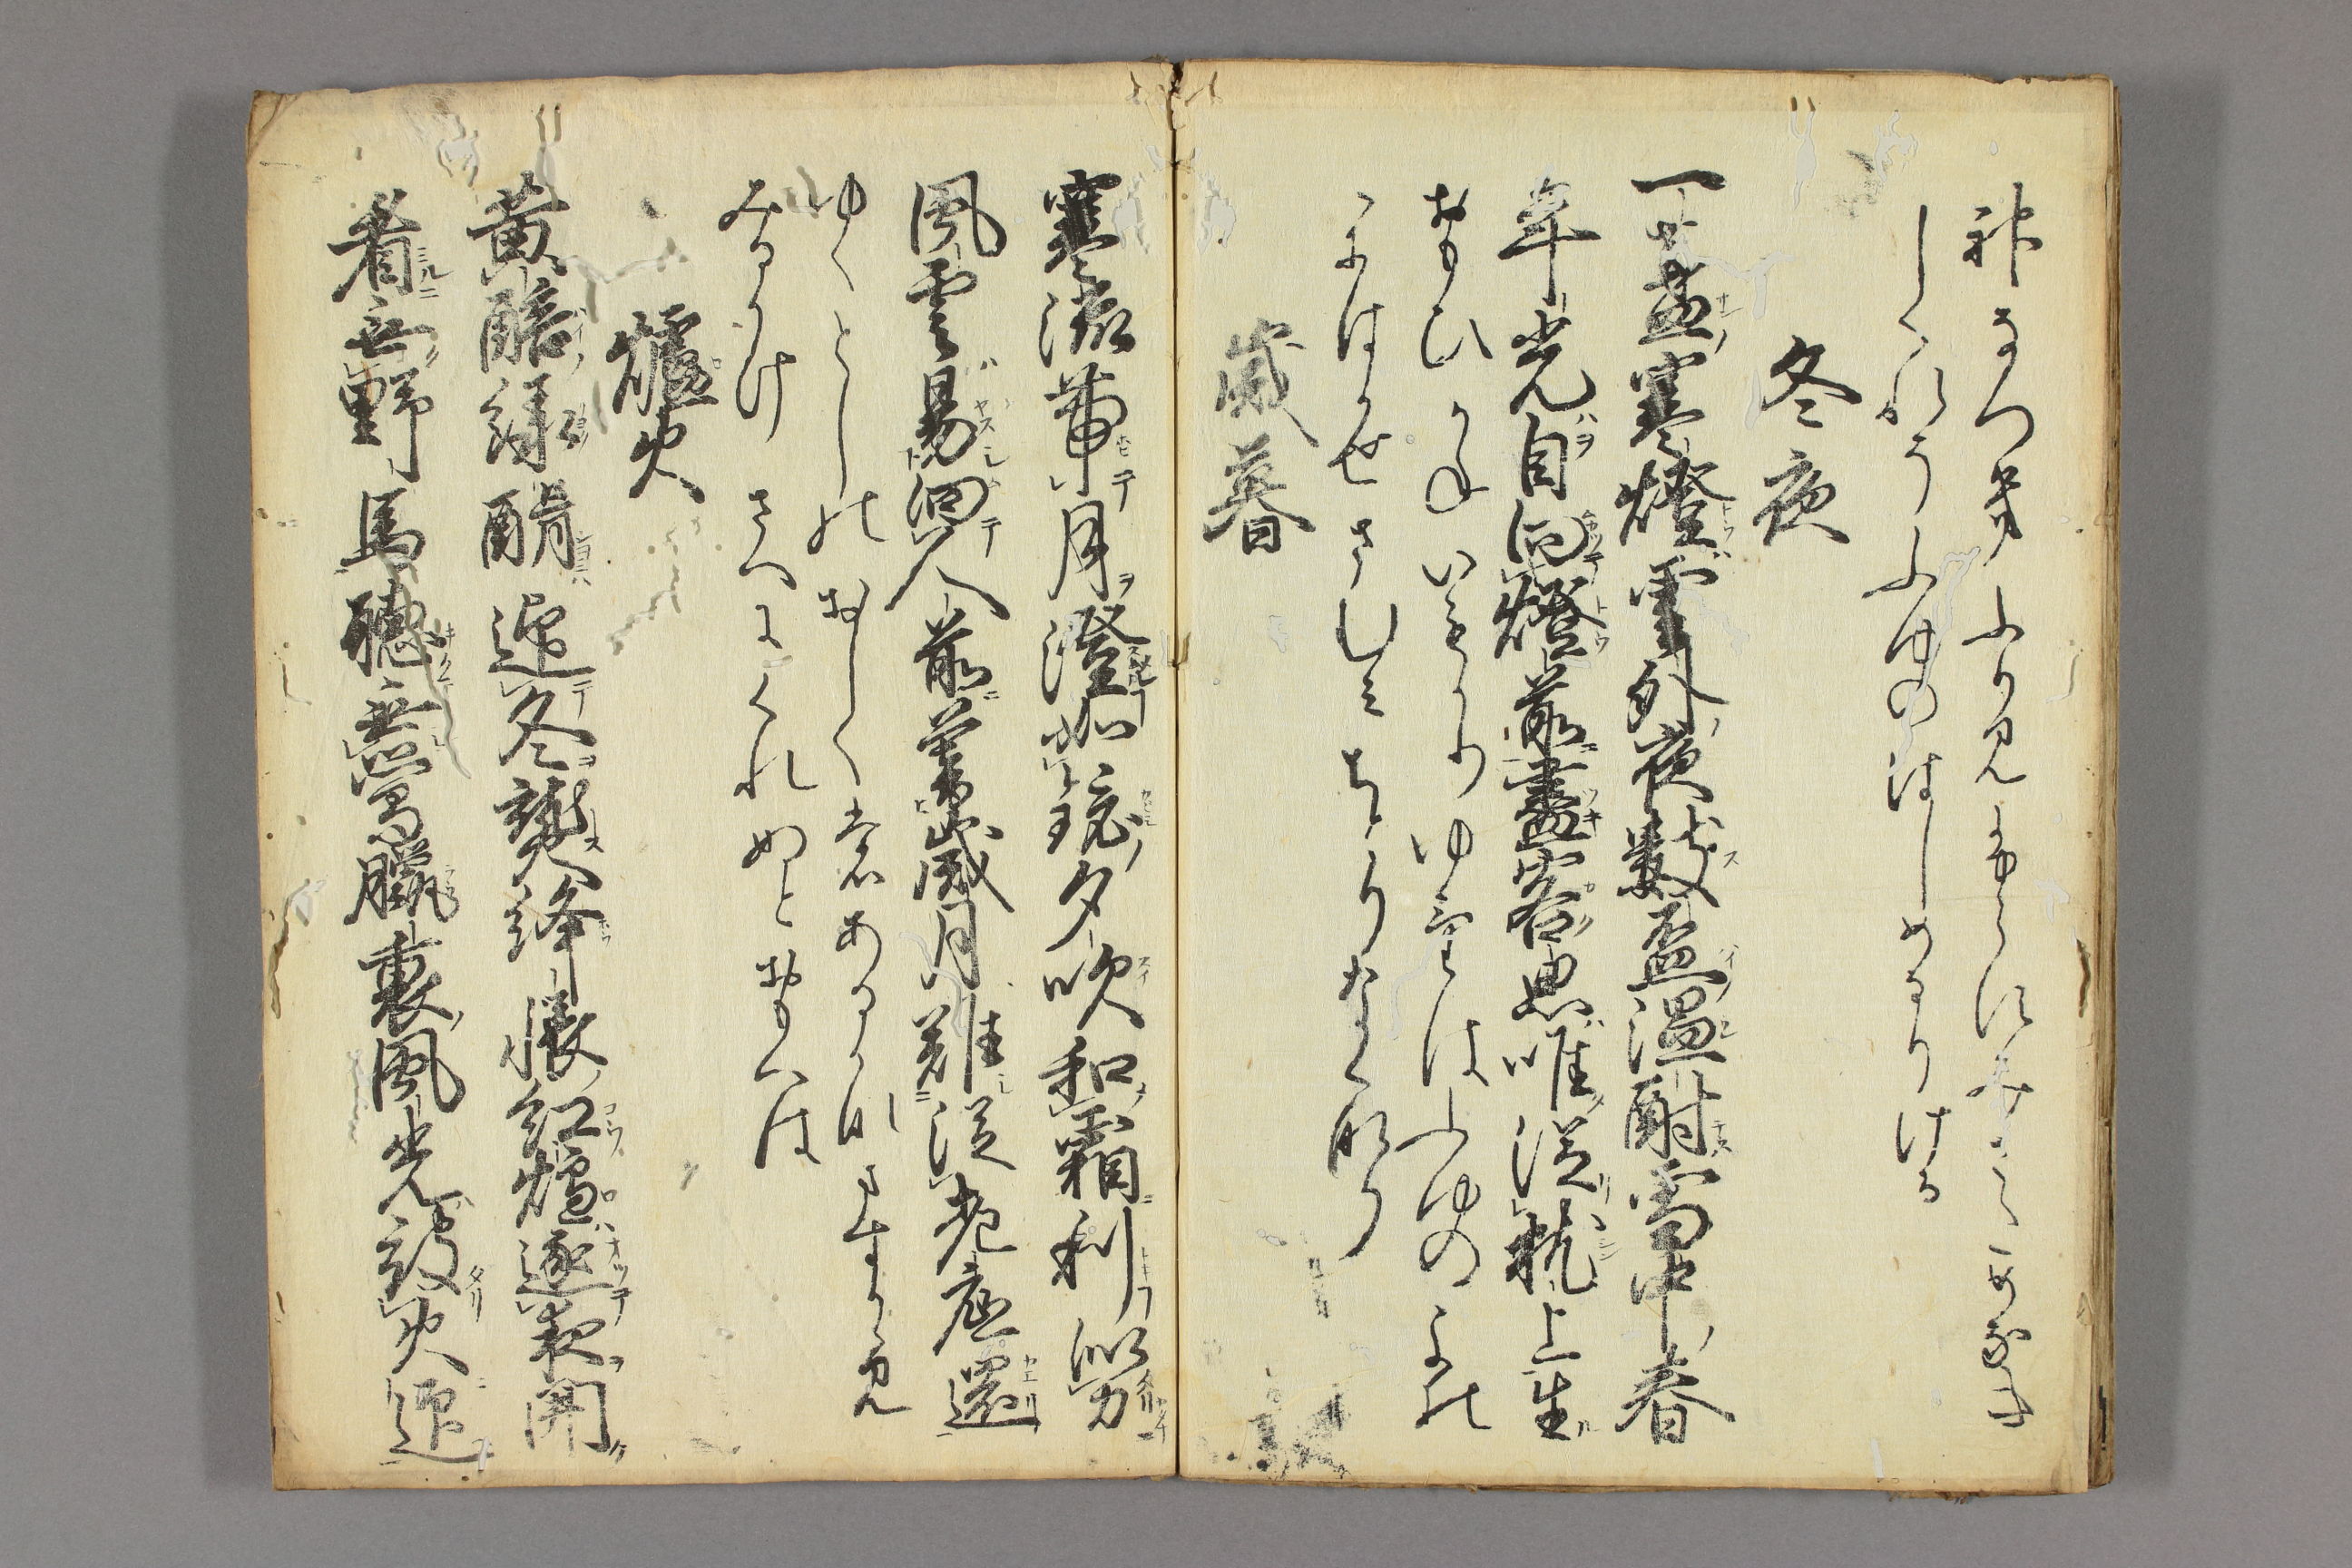 神なつきふり見ふらすみさためなき
しくれそふゆのはしめなりける
冬夜
一盞寒燈雲外夜數盃温酎雪中春
年光自向燈前盡客思唯従枕上生
おもひかねいもかりゆけはふゆのよの
かはかせさむみちとりなくなり
歳暮
寒流帯月澄如鏡夕吹和霜利似刀
風雲易向人前暮歳月難従老底還
ゆくとしのおしくもあるかなますかゝ見
みるかけさへにくれぬとおもへは
爐火
黄醅緑醑迎冬熟絳帳紅爐逐夜開
看無野馬聴無鶯臘裏風光被火迎